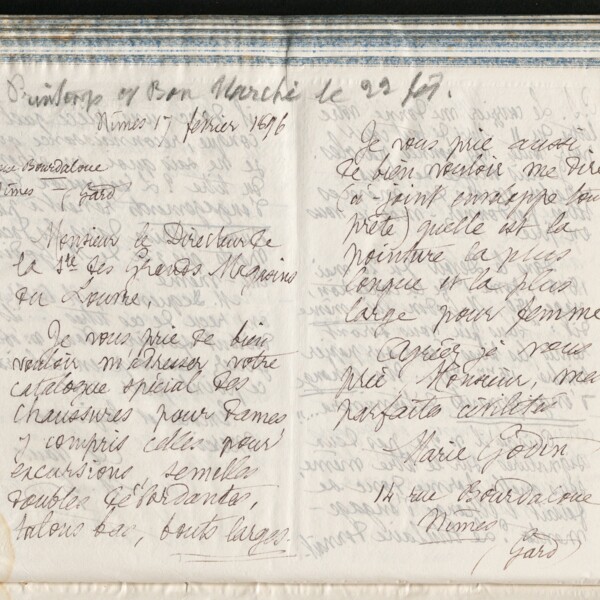 Printemps et Bon Marché le 22 fév.
Nîmes 17 février 1896
rue Bourdaloue
Nîmes - (Gard)
Monsieur le Directeur de
la Sté des Grands Magasins
du Louvre,
Je vous prie de bien
vouloir m'adresser votre
catalogue spécial des
chaussures pour Dames
y compris celles pour
excursions, semelles
doubles débordantes,
talons bas, bouts larges.
Je vous prie aussi
de bien vouloir me dire
(ci-joint enveloppe toute
prête) quelle est la
pointure la plus
longue et la plus
large pour femme
Agréez je vous
prie, Monsieur, mes
parfaites civilités
Marie Godin
14 rue Bourdaloue
Nîmes
(Gard)